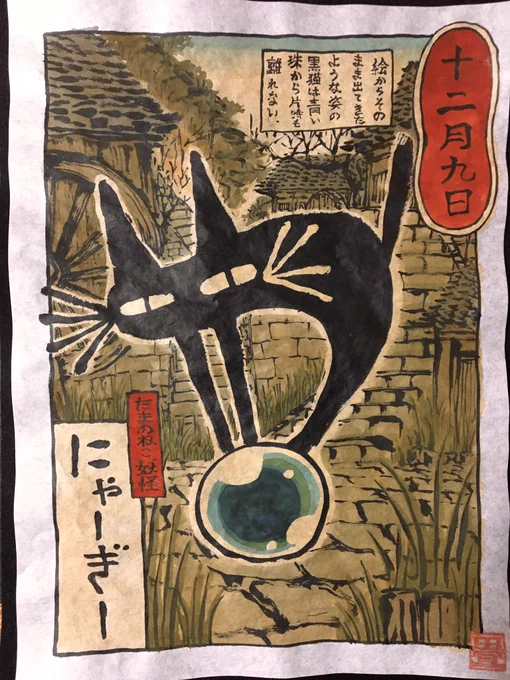 十二月九日
絵からその
まま出てきた
ような姿の
黒猫は青い
珠から片時も
離れない、
たまのねこ妖怪
にゃーぎー